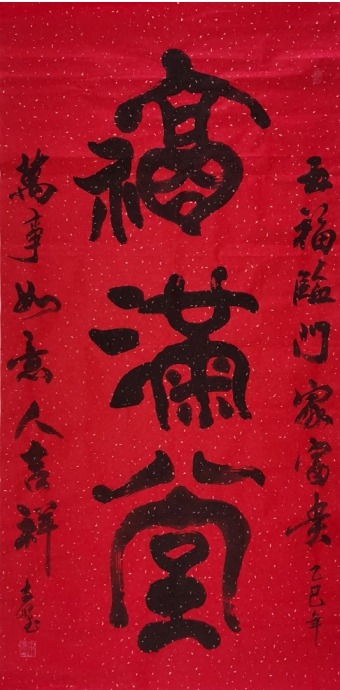 五福臨門家富贵
乙巳年
福滿堂
萬事如意人吉祥